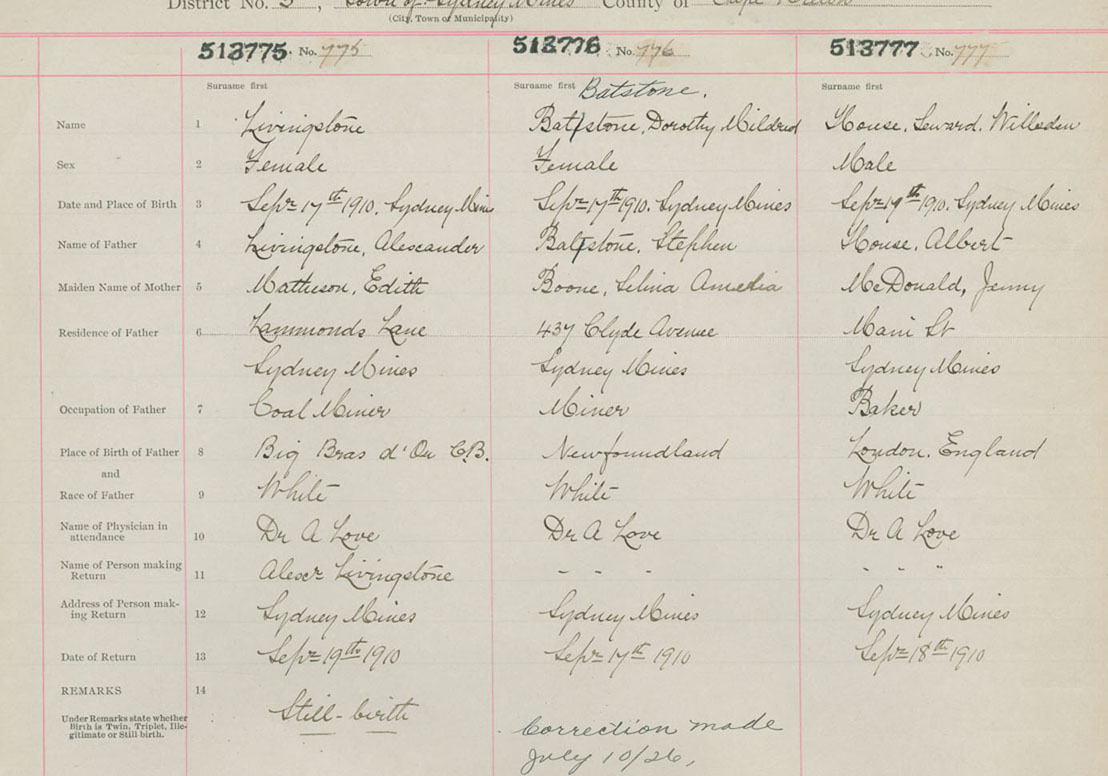 District No. 3, Town of Sydney Mines County of Cape Breton
(City, Town or Municipality)
513775 No. 775 513776 No. 776 513777 No. 777
Surname first Surname first Batstone. Surname first
Name 1 Livingstone Battstone, Dorothy Mildred House, Seward, Willsden
Sex 2 Female Female Male
Date and Place of Birth 3 Sept 17th 1910. Sydney Mines Sept 17th 1910. Sydney Mines Sept 17th 1910. Sydney Mines
Name of Father 4 Livingstone, Alescander Battstone, Stephen House, Albert
Maiden Name of Mother 5 Matheson, Edith Boone, Selina Amelia McDonald, Jenny
Residence of Father 6 Lammonds Lane 437 Clyde Avenue Main St
Sydney Mines Sydney Mines Sydney Mines
Occupation of Father 7 Coal Miner Miner Baker
Place of Birth of Father 8 Big Bras d'Or C.B. Newfoundland London, England
and
Race of Father 9 White White White
Name of Physician in
attendance 10 Dr A Love Dr A Love Dr A Love
Name of Person making
Return 11 Alescr Livingstone - - - - - "
Address of Person mak-
ing Return 12 Sydney Mines Sydney Mines Sydney Mines
Date of Return 13 Sept 19th 1910 Sept 17th 1910 Sept 18th 1910
REMARKS 14
Under Remarks state whether
Birth is Twin, Triplet, Ille-
gitimate or Still birth.
Still-birth
Correction made
July 10/26,